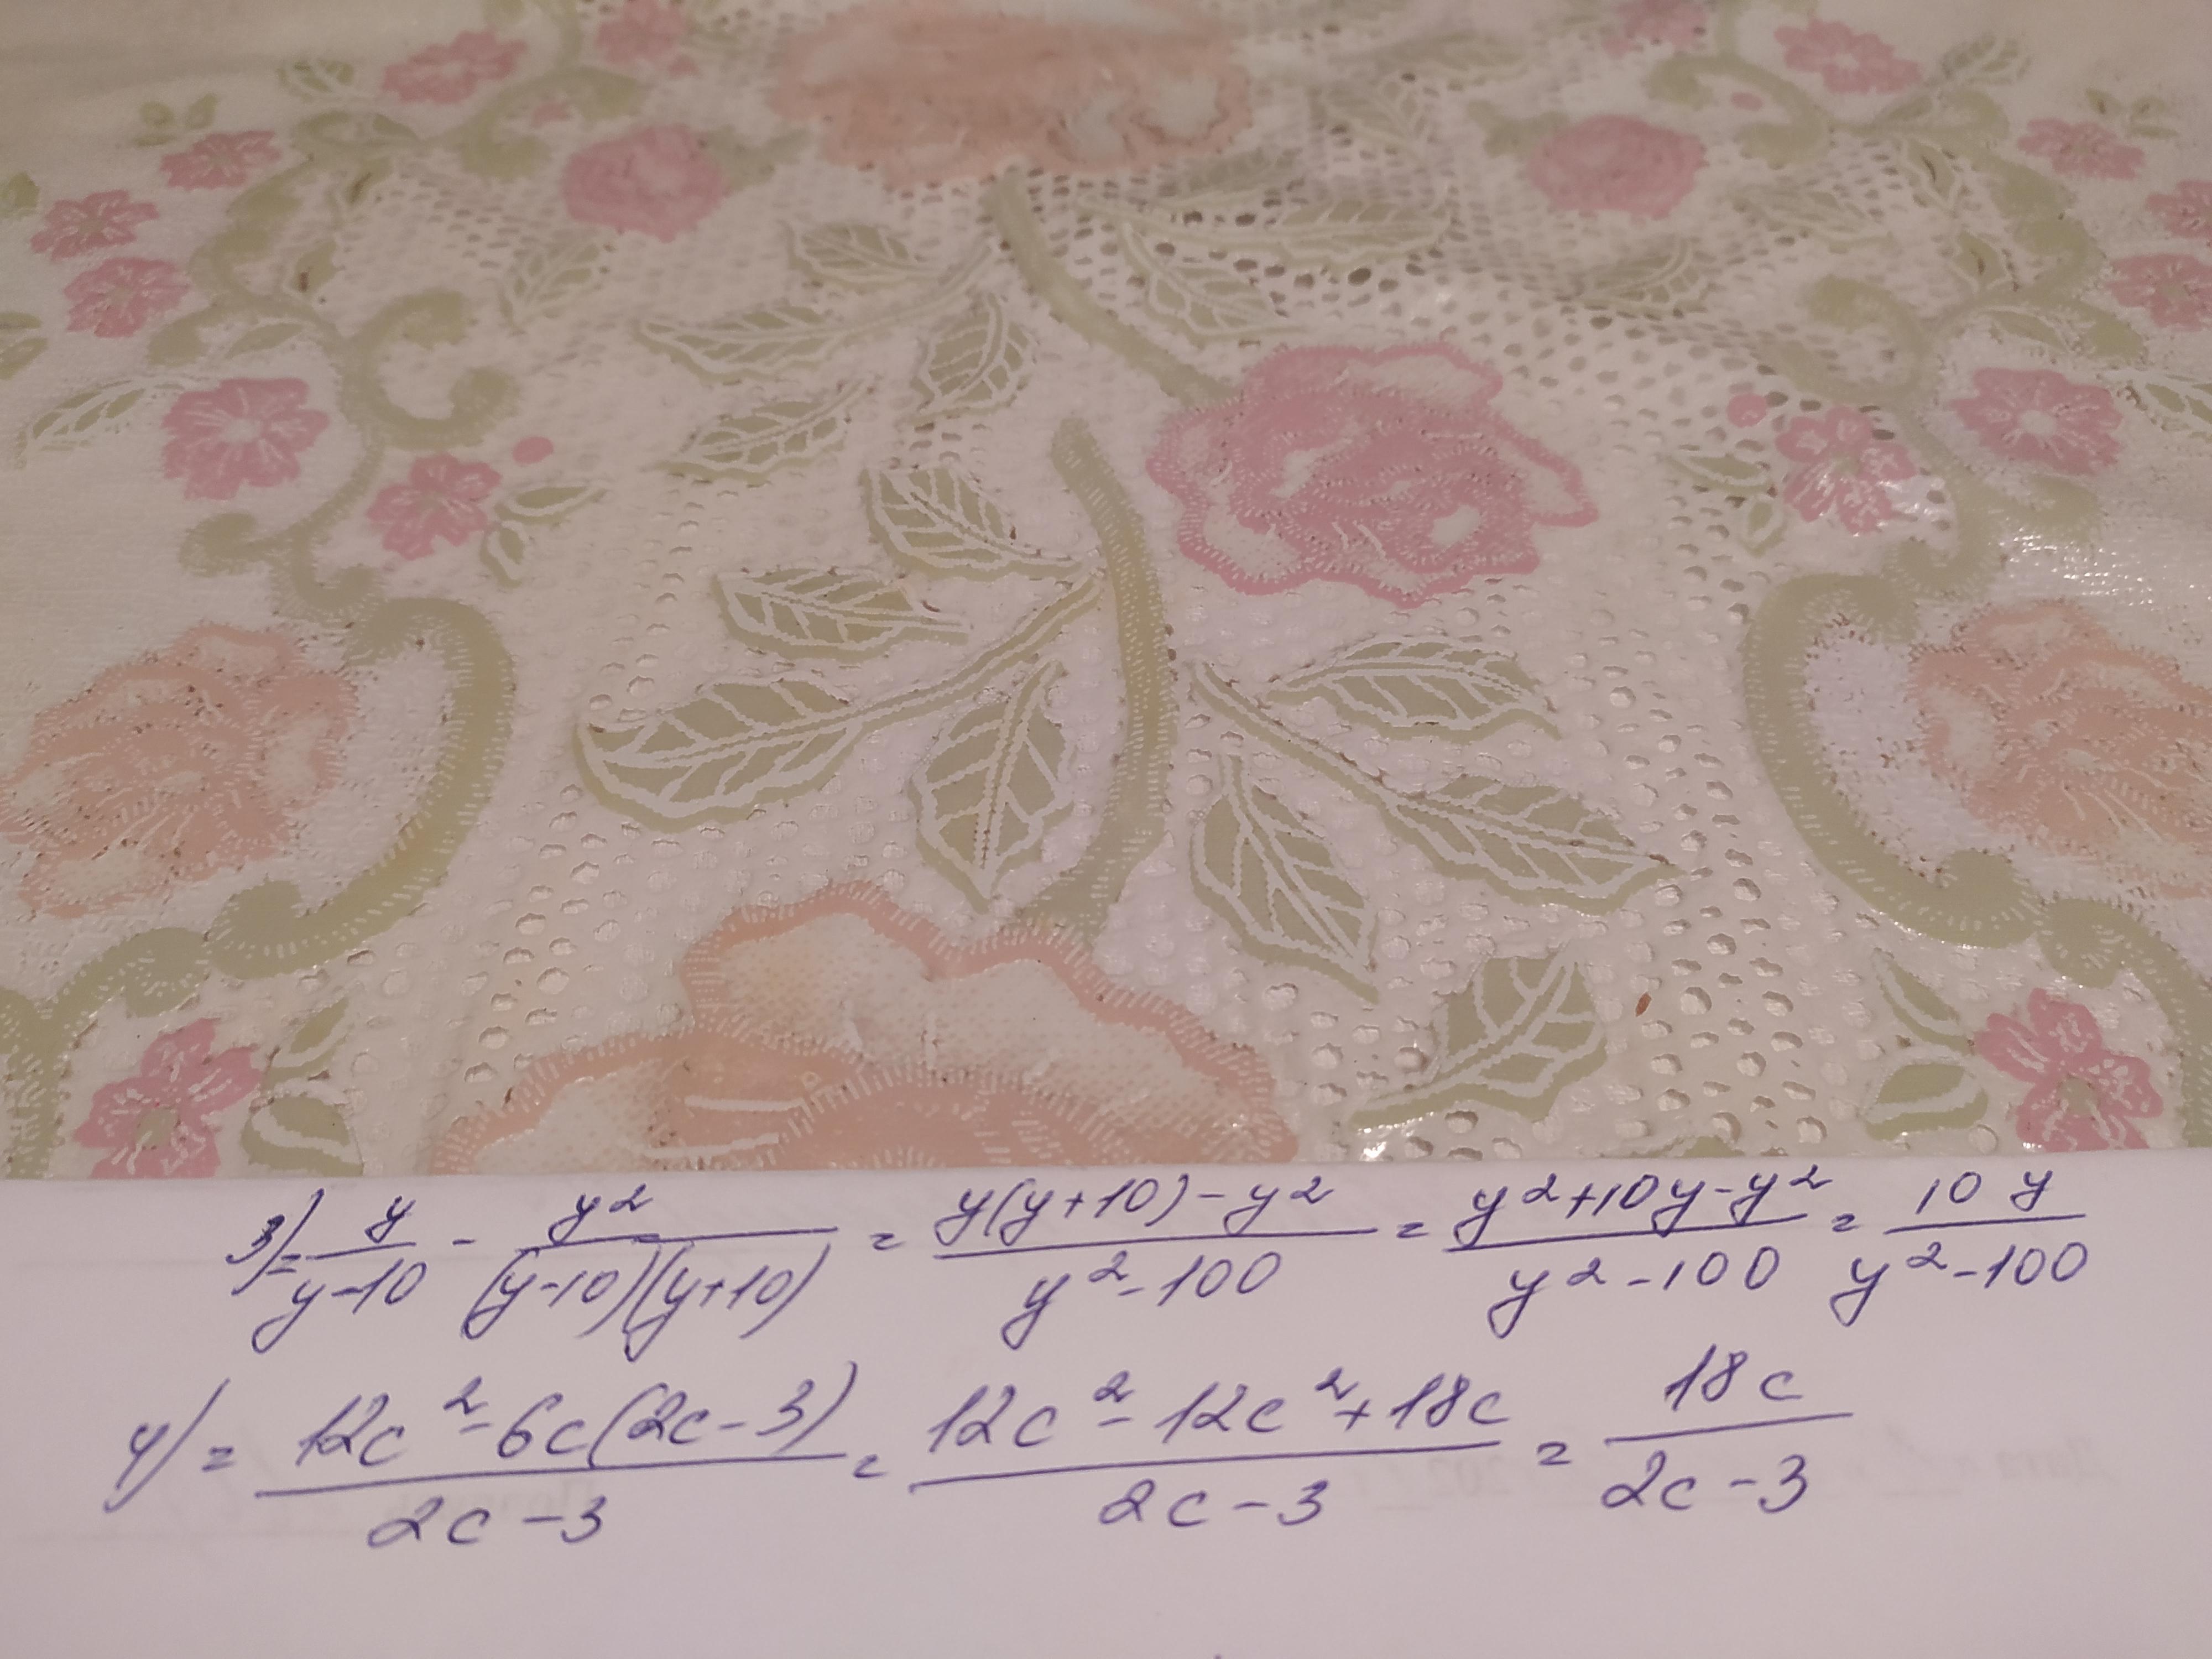 3) = y/(y-10) - y²/((y-10)(y+10)) = (y(y+10)-y²)/(y²-100) = (y²+10y-y²)/(y²-100) = 10y/(y²-100)
4) = (12c²-6c(2c-3))/(2c-3) = (12c²-12c²+18c)/(2c-3) = 18c/(2c-3)